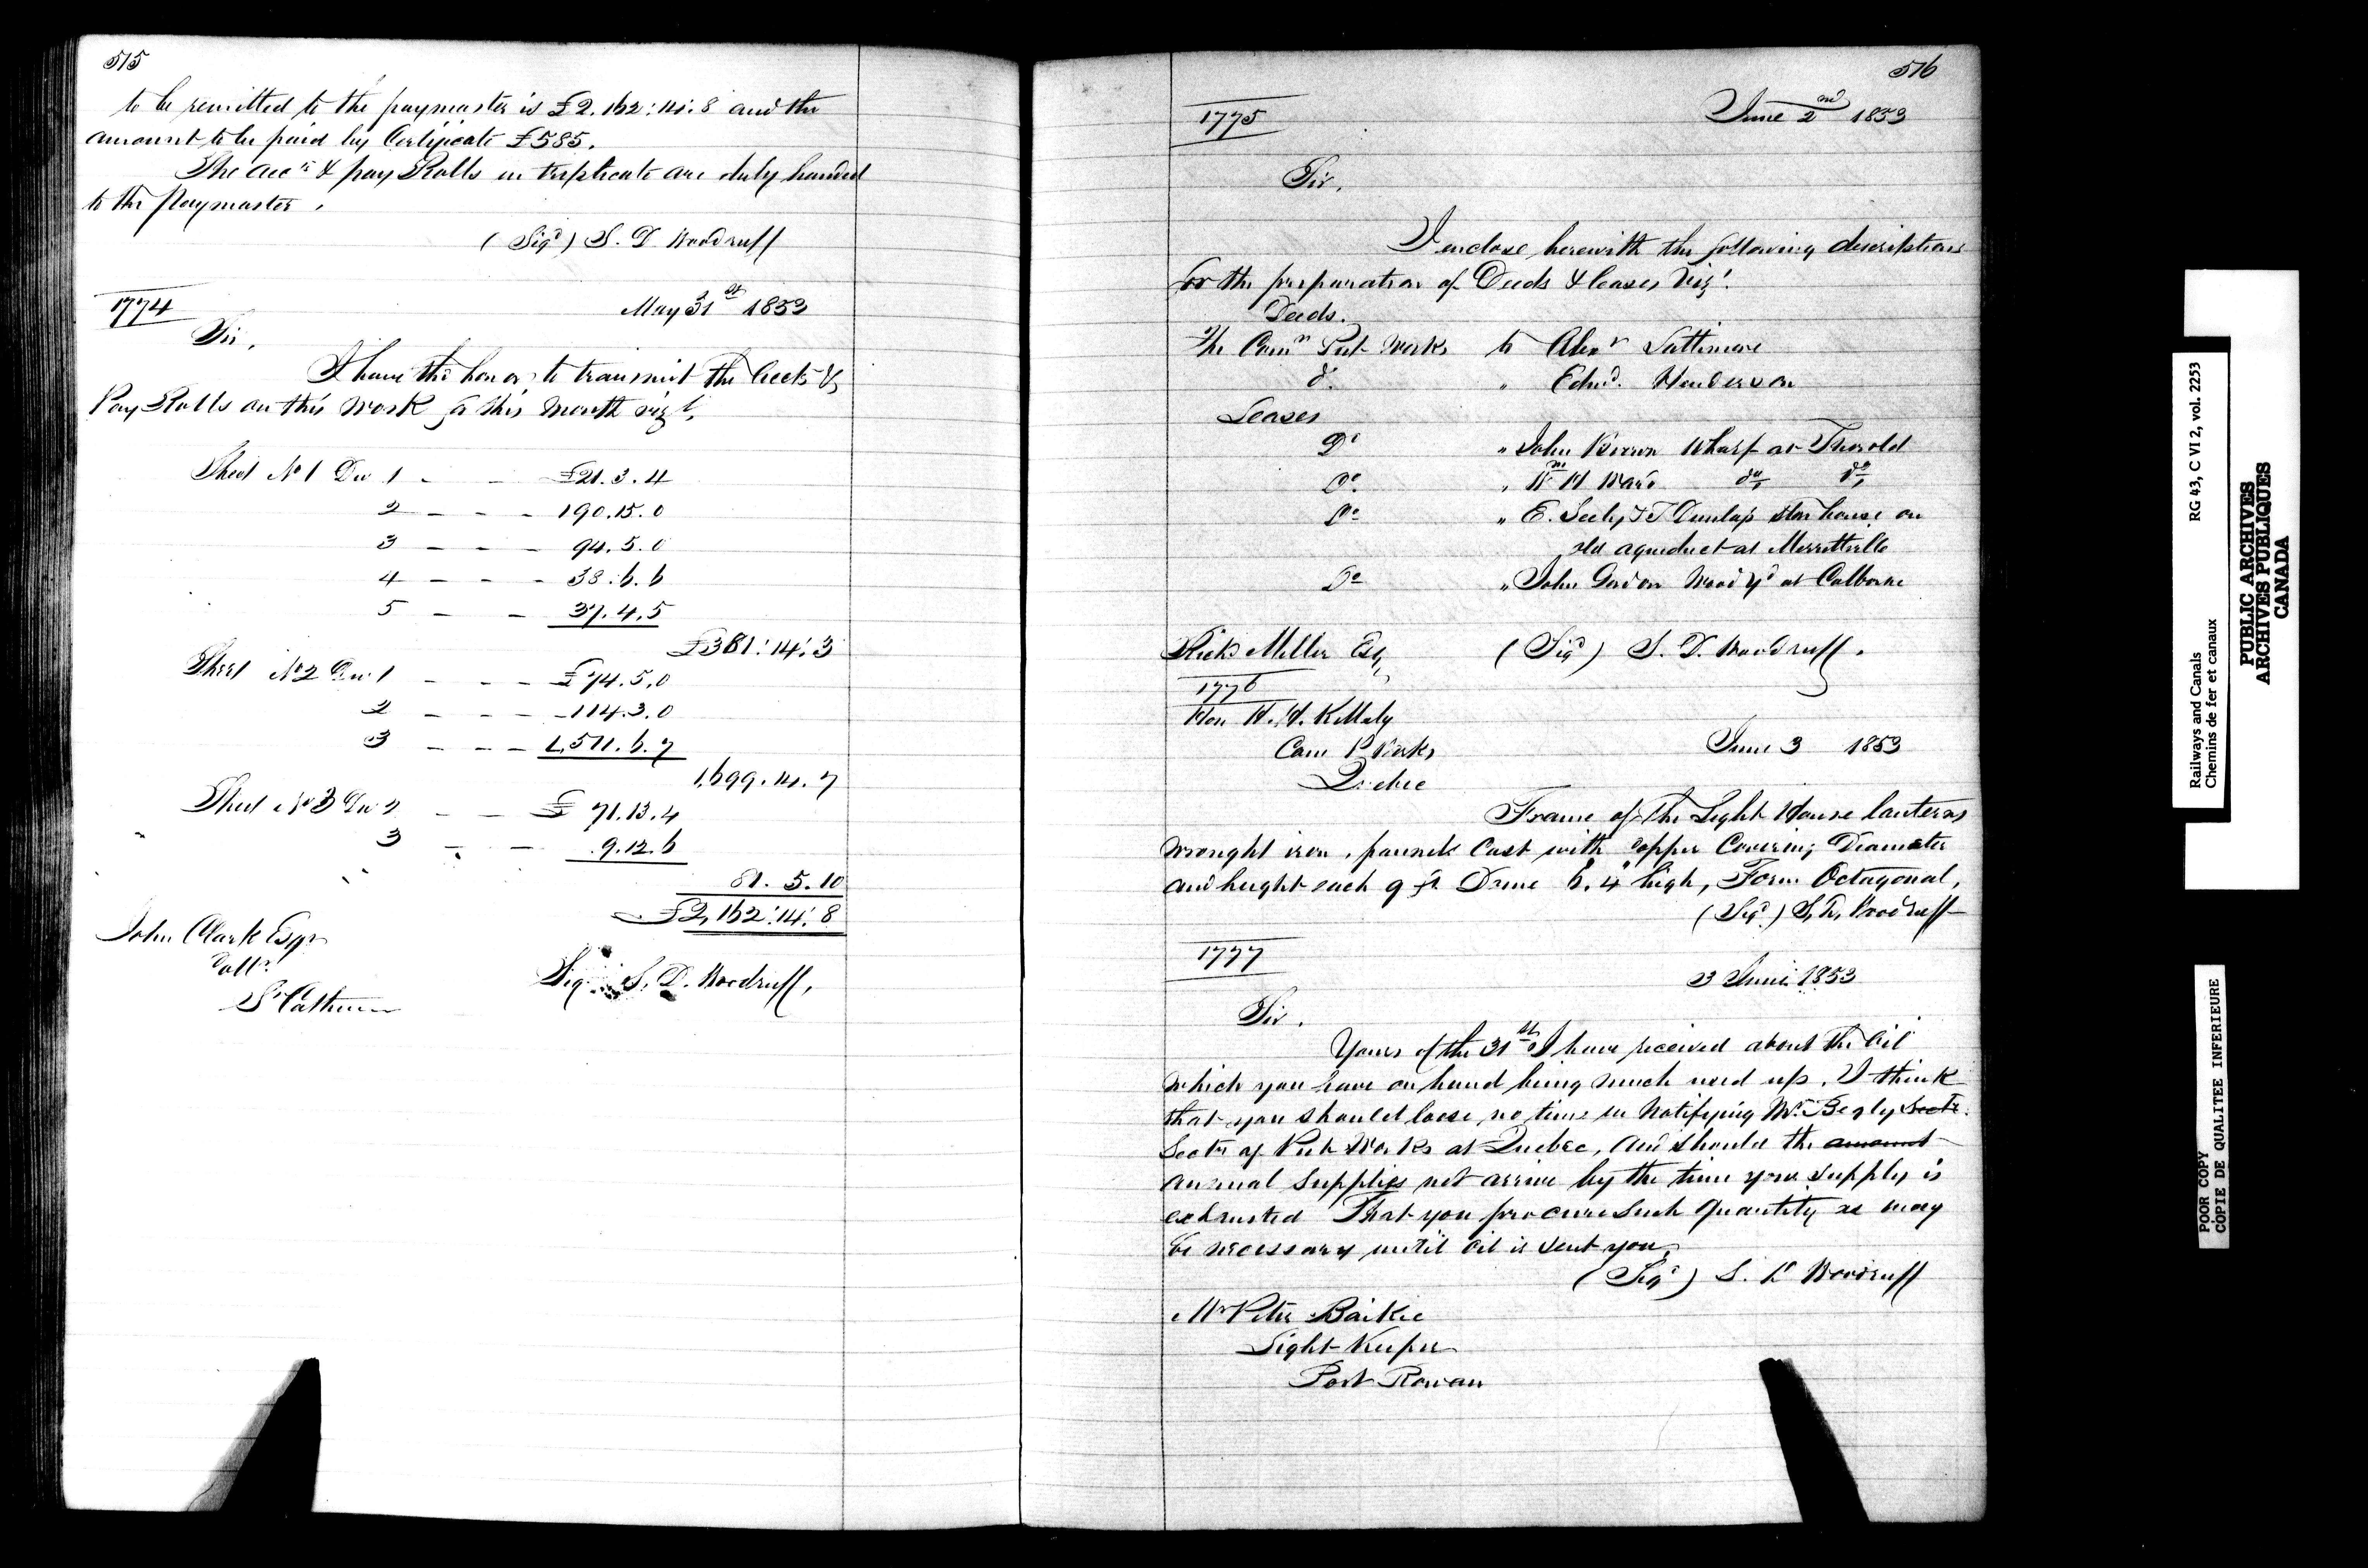 515
to be remitted to the paymaster is £2,162:14:8 and the
amount to be paid by Certificate £585.
The accts & pay Rolls in triplicate are duly handed
to the Paymaster.
(Sigd) S. D Woodruff
1774
May 31st 1853
Sir,
I have the honor to transmit the Accts &
Pay Rolls on this Work for this month vizt,
Sheet No 1 Div 1 - - £21.3.4
2 - - - 190.15.0
3 - - - 94.5.0
4 - - - 38.6.6
5 - - 37.4.5
£381:14:3
Sheet No 2 Div 1 - - - £74.5.0
2 - - - 114.3.0
3 - - - 1,511.6.7
1,699.14.7
Sheet No 3 Div 2 - - £71.13.4
3 - - 9.12.6
81.5.10
£2,162:14:8
John Clark Esqr
Collr
St Catherines
Sigd S. D. Woodruff,
516
1775
June 2nd 1853
Sir,
I enclose herewith the following descriptions
for the preparation of Deeds & leases Vizt.
Deeds.
The Comrs Pub Works to Alexr Lattimore
do. " Edwd. Henderson
Leases
Do " John Brown Wharf at Thorold
Do. " Wm H Ward do do
Do " E. Seely & T Dunlap storehouse on
old aqueduct at Merrittville
Do " John Gordon Wood Yd at Colborne
Richd Miller Esq,
(Sigd) S. D. Woodruff.
1776
Hon H. H. Killaly
Com P Works
Quebec
June 3 1853
Frame of the Light House lanterns
wrought iron, pannels Cast with copper Covering Diameter
and height each 9 ft Dome 6.4" high, Form Octagonal,
(Sigd.) S. D. Woodruff
1777
3 June 1853
Sir,
Yours of the 31st I have received about the Oil
which you have on hand being much used up. I think
that you should loose no time in Notifying Mr. Begly Sectr.
Sectr of Pub Works at Quebec, and should the amount
annual supplies not arrive by the time your supply is
exhausted That you procure such quantity as may
be necessary until Oil is sent you.
(Sigd) S. D Woodruff
Mr Peter Baikie
Light Keeper
Port Rowan
Railways and Canals RG 43, C VI 2, vol. 2253
Chemins de fer et canaux
PUBLIC ARCHIVES
ARCHIVES PUBLIQUES
CANADA
POOR COPY
COPIE DE QUALITEE INFERIEURE